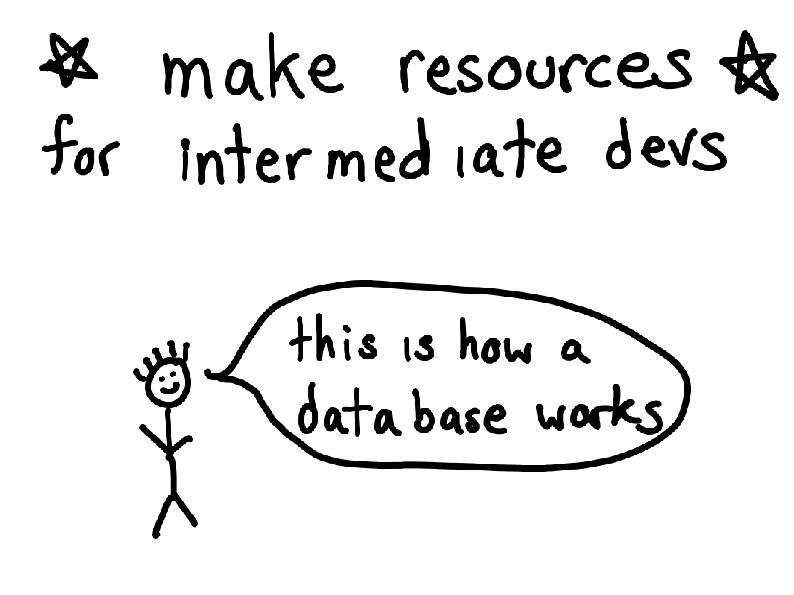 make resources
for intermediate devs
this is how a
database works